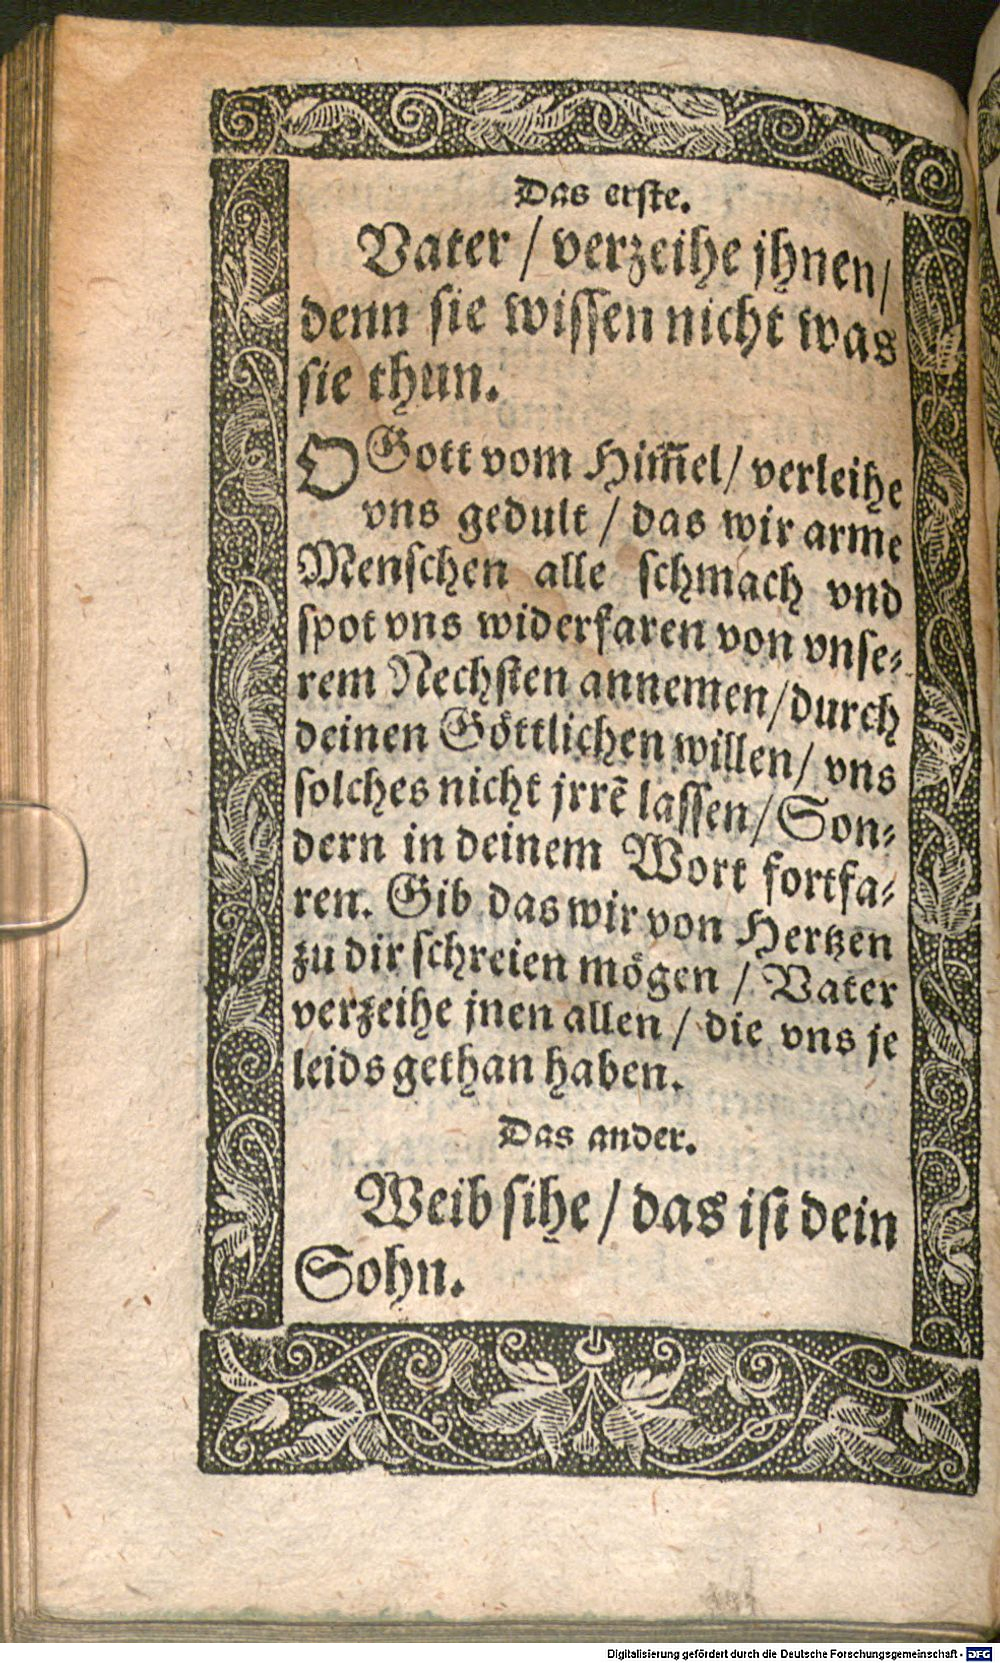 Das erste.
Vater / verzeihe jhnen /
denn sie wissen nicht was
sie thun.
O Gott vom Him̅el / verleihe
vns gedult / das wir arme
Menschen alle schmach vnd
spot vns widerfaren von vnse⸗
rem Nechsten annemen / durch
deinen Göttlichen willen / vns
solches nicht jrrẽ lassen / Son⸗
dern in deinem Wort fortfa⸗
ren. Gib das wir von Hertzen
zu dir schreien mögen / Vater
verzeihe jnen allen / die vns je
leids gethan haben.
Das ander.
Weib sihe / das ist dein
Sohn.
Digitalisierung gefördert durch die Deutsche Forschungsgemeinschaft - DFG